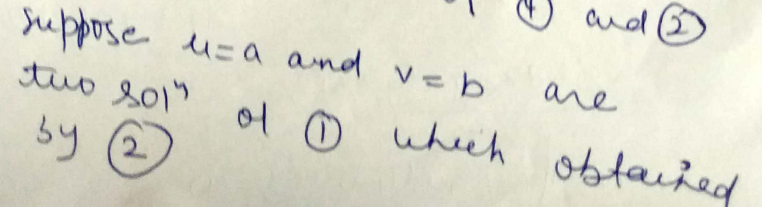 ④ and ②
suppose u=a and v=b are
two solⁿ of ① which obtained
by ②